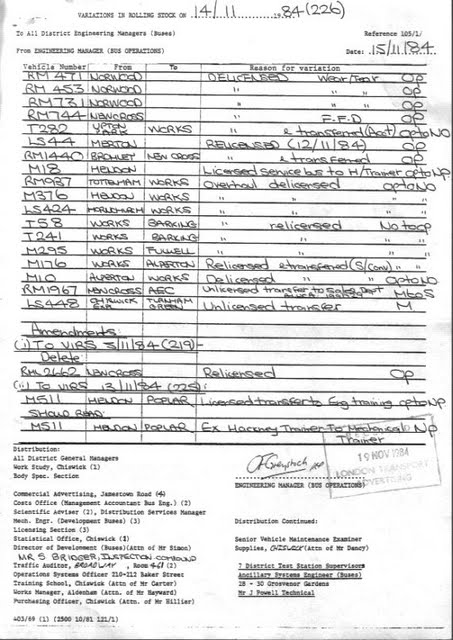 VARIATIONS IN ROLLING STOCK ON 14/11 1984 (226)
To All District Engineering Managers (Buses) Reference 105/1/
From ENGINEERING MANAGER (BUS OPERATIONS) Date: 15/11/84.
Vehicle Number From To Reason for variation
RM 471 NORWOOD DELICENSED Wear/Tear Op
RM 453 NORWOOD " " " Op
RM 731 NORWOOD " " " Op
RM744 NEWCROSS " F.F.D Op
T282 UPTON PARK WORKS " & transferred (Acct) Op to NO
LS44 MERTON RELICENSED (12/11/84) Op
RM1440 BROMLEY NEW CROSS " & transferred Op
M18 HENDON Licensed Service bus to H/Trainer Op to Np
RM937 TOTTENHAM WORKS Overhaul delicensed Op to NO
M376 HENDON WORKS " " "
LS424 WORKS " " "
T58 WORKS BARKING " relicensed No to Op
T241 WORKS BARKING " " "
M295 WORKS FULWELL " " "
M176 WORKS ALPERTON Relicensed & transferred (S/Conv) " "
M10 ALPERTON WORKS Delicensed " " Op to NO
RM1967 NEWCROSS AEC Unlicensed transfer to Sales Dept
LS448 CHISWICK TURNHAM GREEN Unlicensed transfer M
Amendments
(i) TO VIRS 5/11/84 (219)-
Delete
RML 2662 NEWCROSS Relicensed Op
(ii) TO VIRS 13/11/84 (225):
M511 HENDON POPLAR Licensed transfer to Eng training Op to Np
SHOULD READ:
M511 HENDON POPLAR Ex Hackney Trainer To Mechanical Np
Trainer
19 NOV 1984
LONDON TRANSPORT
ADVERTISING
Distribution:
All District General Managers
Work Study, Chiswick (1)
Body Spec. Section
ENGINEERING MANAGER (BUS OPERATIONS)
Commercial Advertising, Jamestown Road
Costs Office (Management Accountant Bus Eng.) (2)
Scientific Adviser (2), Distribution Services Manager
Mech. Engr. (Development Buses) (3)
Licensing Section (3)
Statistical Office, Chiswick (1)
Director of Development (Buses)(Attn of Mr Simon)
MR S BRIDGER, INSPECTION COMPOUND
Traffic Auditor, BROADWAY, ROOM 461 (2)
Operations Systems Officer 210-212 Baker Street
Training School, Chiswick (Attn of Mr Carter)
Works Manager, Aldenham (Attn. of Mr Hayward)
Purchasing Officer, Chiswick (Attn of Mr Hillier)
Distribution Continued:
Senior Vehicle Maintenance Examiner
Supplies, CHISWICK (Attn of Mr Dancy)
7 District Test Station Supervisors
Ancillary Systems Engineer (Buses)
28 - 30 Grosvenor Gardens
Mr J Powell Technical
403/69 (1) (2500 10/81 121/1)